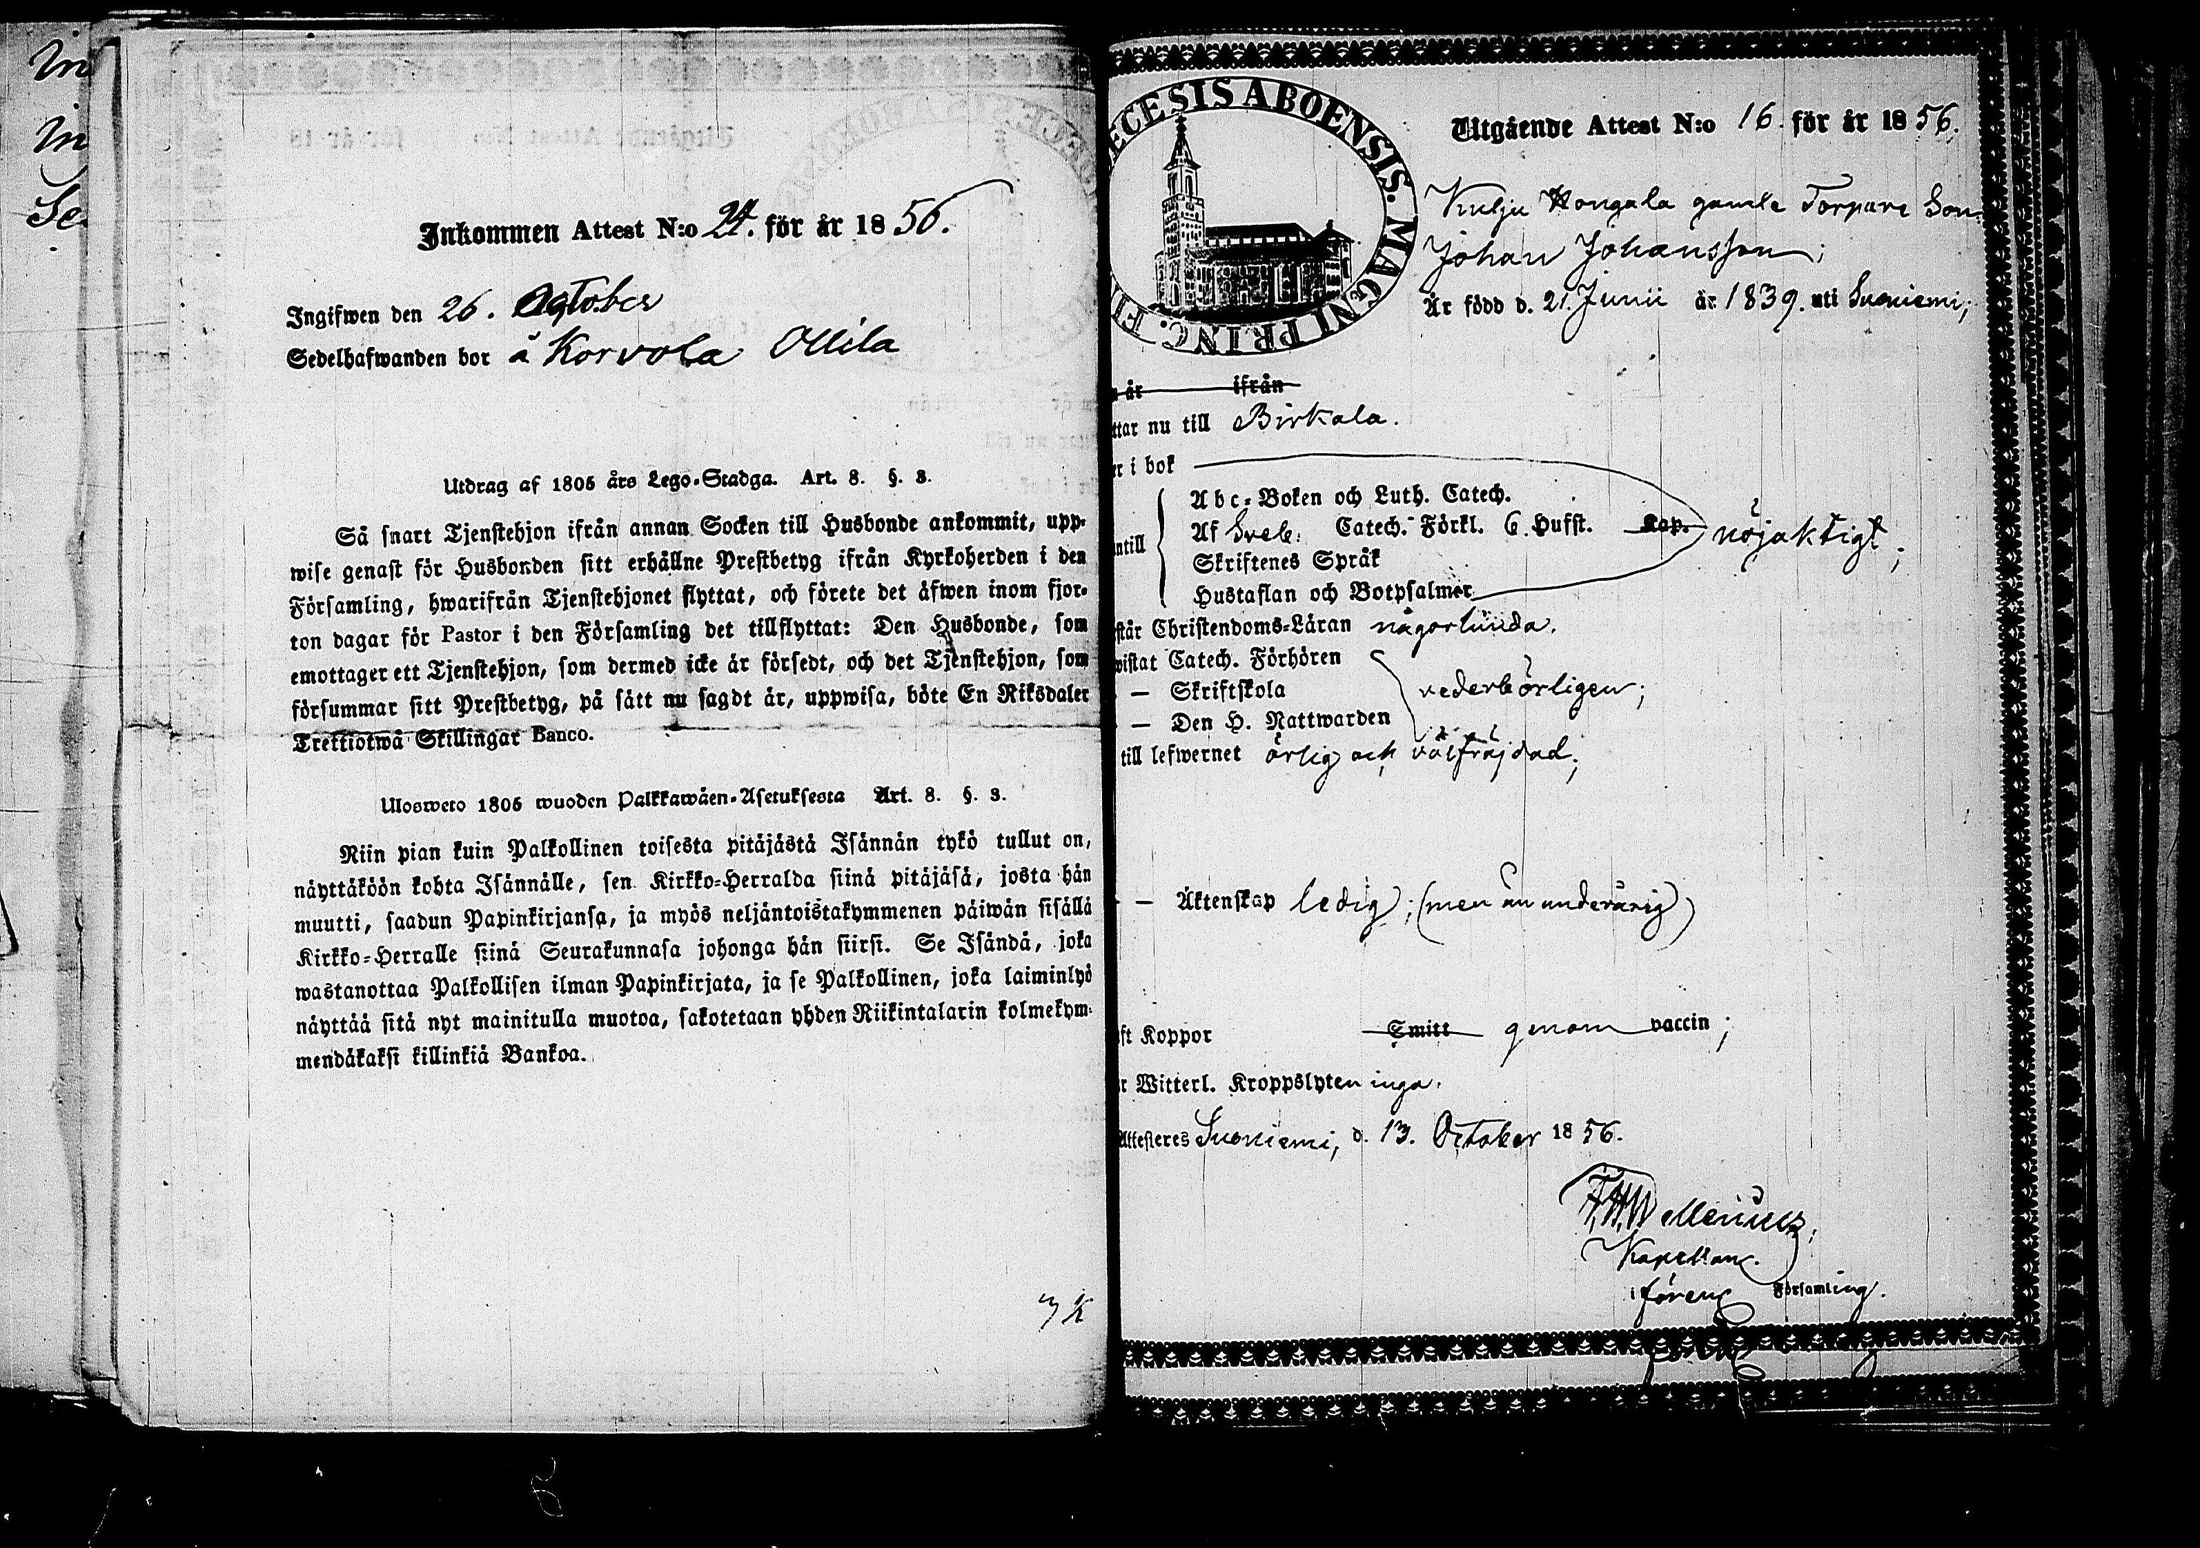 Inkommen Attest N:o 24. för år 1856.
Ingifwen den 26. October
Sedelhafwanden bor å Korvola Ollila
Utdrag af 1805 års Lego-Stadga. Art. 8. §. 3.
Så snart Tjenstehjon ifrån annan Socken till Husbonde ankommit, upp-
wise genast för Husbonden sitt erhållne Prestbetyg ifrån Kyrkoherden i den
Församling, hwarifrån Tjenstehjonet flyttat, och förete det äfwen inom fjor-
ton dagar för Pastor i den Församling det tillflyttat: Den Husbonde, som
emottager ett Tjenstehjon, som dermed icke är försedt, och det Tjenstehjon, som
försummar sitt Prestbetyg, på sätt nu sagdt är, uppwisa, böte En Riksdaler
Trettiotwå Skillingar Banco.
Ulosweto 1805 wuoden Palkkawäen-Asetuksesta Art. 8. §. 3.
Niin pian kuin Palkollinen toisesta pitäjästä Isännän tykö tullut on,
näyttäköön kohta Isännälle, sen Kirkko-Herralda siinä pitäjäsä, josta hän
muutti, saadun Papinkirjansa, ja myös neljäntoistakymmenen päiwän sisällä
Kirkko-Herralle siinä Seurakunnasa johonga hän siirsi. Se Isändä, joka
wastanottaa Palkollisen ilman Papinkirjata, ja se Palkollinen, joka laiminlyö
näyttää sitä nyt mainitulla muotoa, sakotetaan yhden Riikintalarin kolmekym-
mendäkaksi killinkiä Bankoa.
ECESIS ABOENSIS. MAGNI PRINC. FI
Utgående Attest N:o 16. för år 1856.
Kulju Hongala gamle Torpare Son
Johan Johansson;
Är född d. 21. Junii år 1839. uti Suoniemi;
år ifrån
ttar nu till Birkala.
er i bok
Abc-Boken och Luth. Catech.
Af Sveb. Catech. Förkl. 6. Hufst. Kap. nöjaktigt;
ntill
Skriftenes Språk
Hustaflan och Botpsalmer
står Christendoms-Läran någorlunda.
wistat Catech. Förhören
— Skriftskola vederbörligen;
— Den H. Nattwarden
till lefwernet ärlig och välfräjdad;
— Äktenskap ledig; (men än underårig)
ft Koppor Smitt genom vaccin;
r Witterl. Kroppslyten inga.
Attesteres Suoniemi, d. 13. October 1856.
Kapellan.
i förenä Församling.